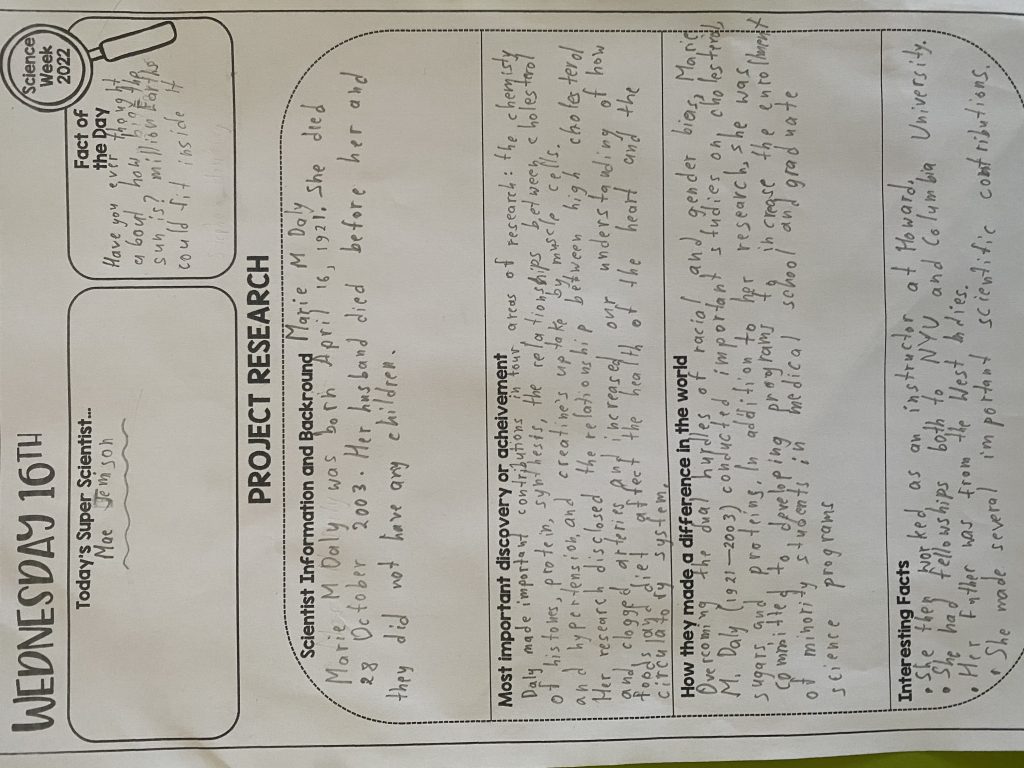 WEDNESDAY 16TH
Science
Week
2022
Today's Super Scientist...
Mae Jemison
Fact of
the Day
Have you ever thought
about how big the
sun is? million Earths
could fit inside it
PROJECT RESEARCH
Scientist Information and Backround Marie M Daly
Marie M Daly was born April 16, 1921. She died
28 October 2003. Her husband died before her and
they did not have any children.
Most important discovery or acheivement
Daly made important contributions in four areas of research: the chemisty
of histones, protein, synthesis, the relationships between cholesterol
and hypertension, and creatine's uptake by muscle cells.
Her research disclosed the relationship between high cholesterol
and clogged arteries and increased our understanding of how
foods and diet affect the health of the heart and the
circulatory system.
How they made a difference in the world
Overcoming the dual hurdles of racial and gender bias, Marie
M. Daly (1921–2003) conducted important studies on cholesterol,
sugars, and proteins. In addition to her research, she was
committed to developing programs to increase the enrollment
of minority students in medical school and graduate
science programs
Interesting Facts
• She then worked as an instructor at Howard
• She had fellowships both to NYU and Columbia University.
• Her father was from the West Indies.
• She made several important scientific contributions.